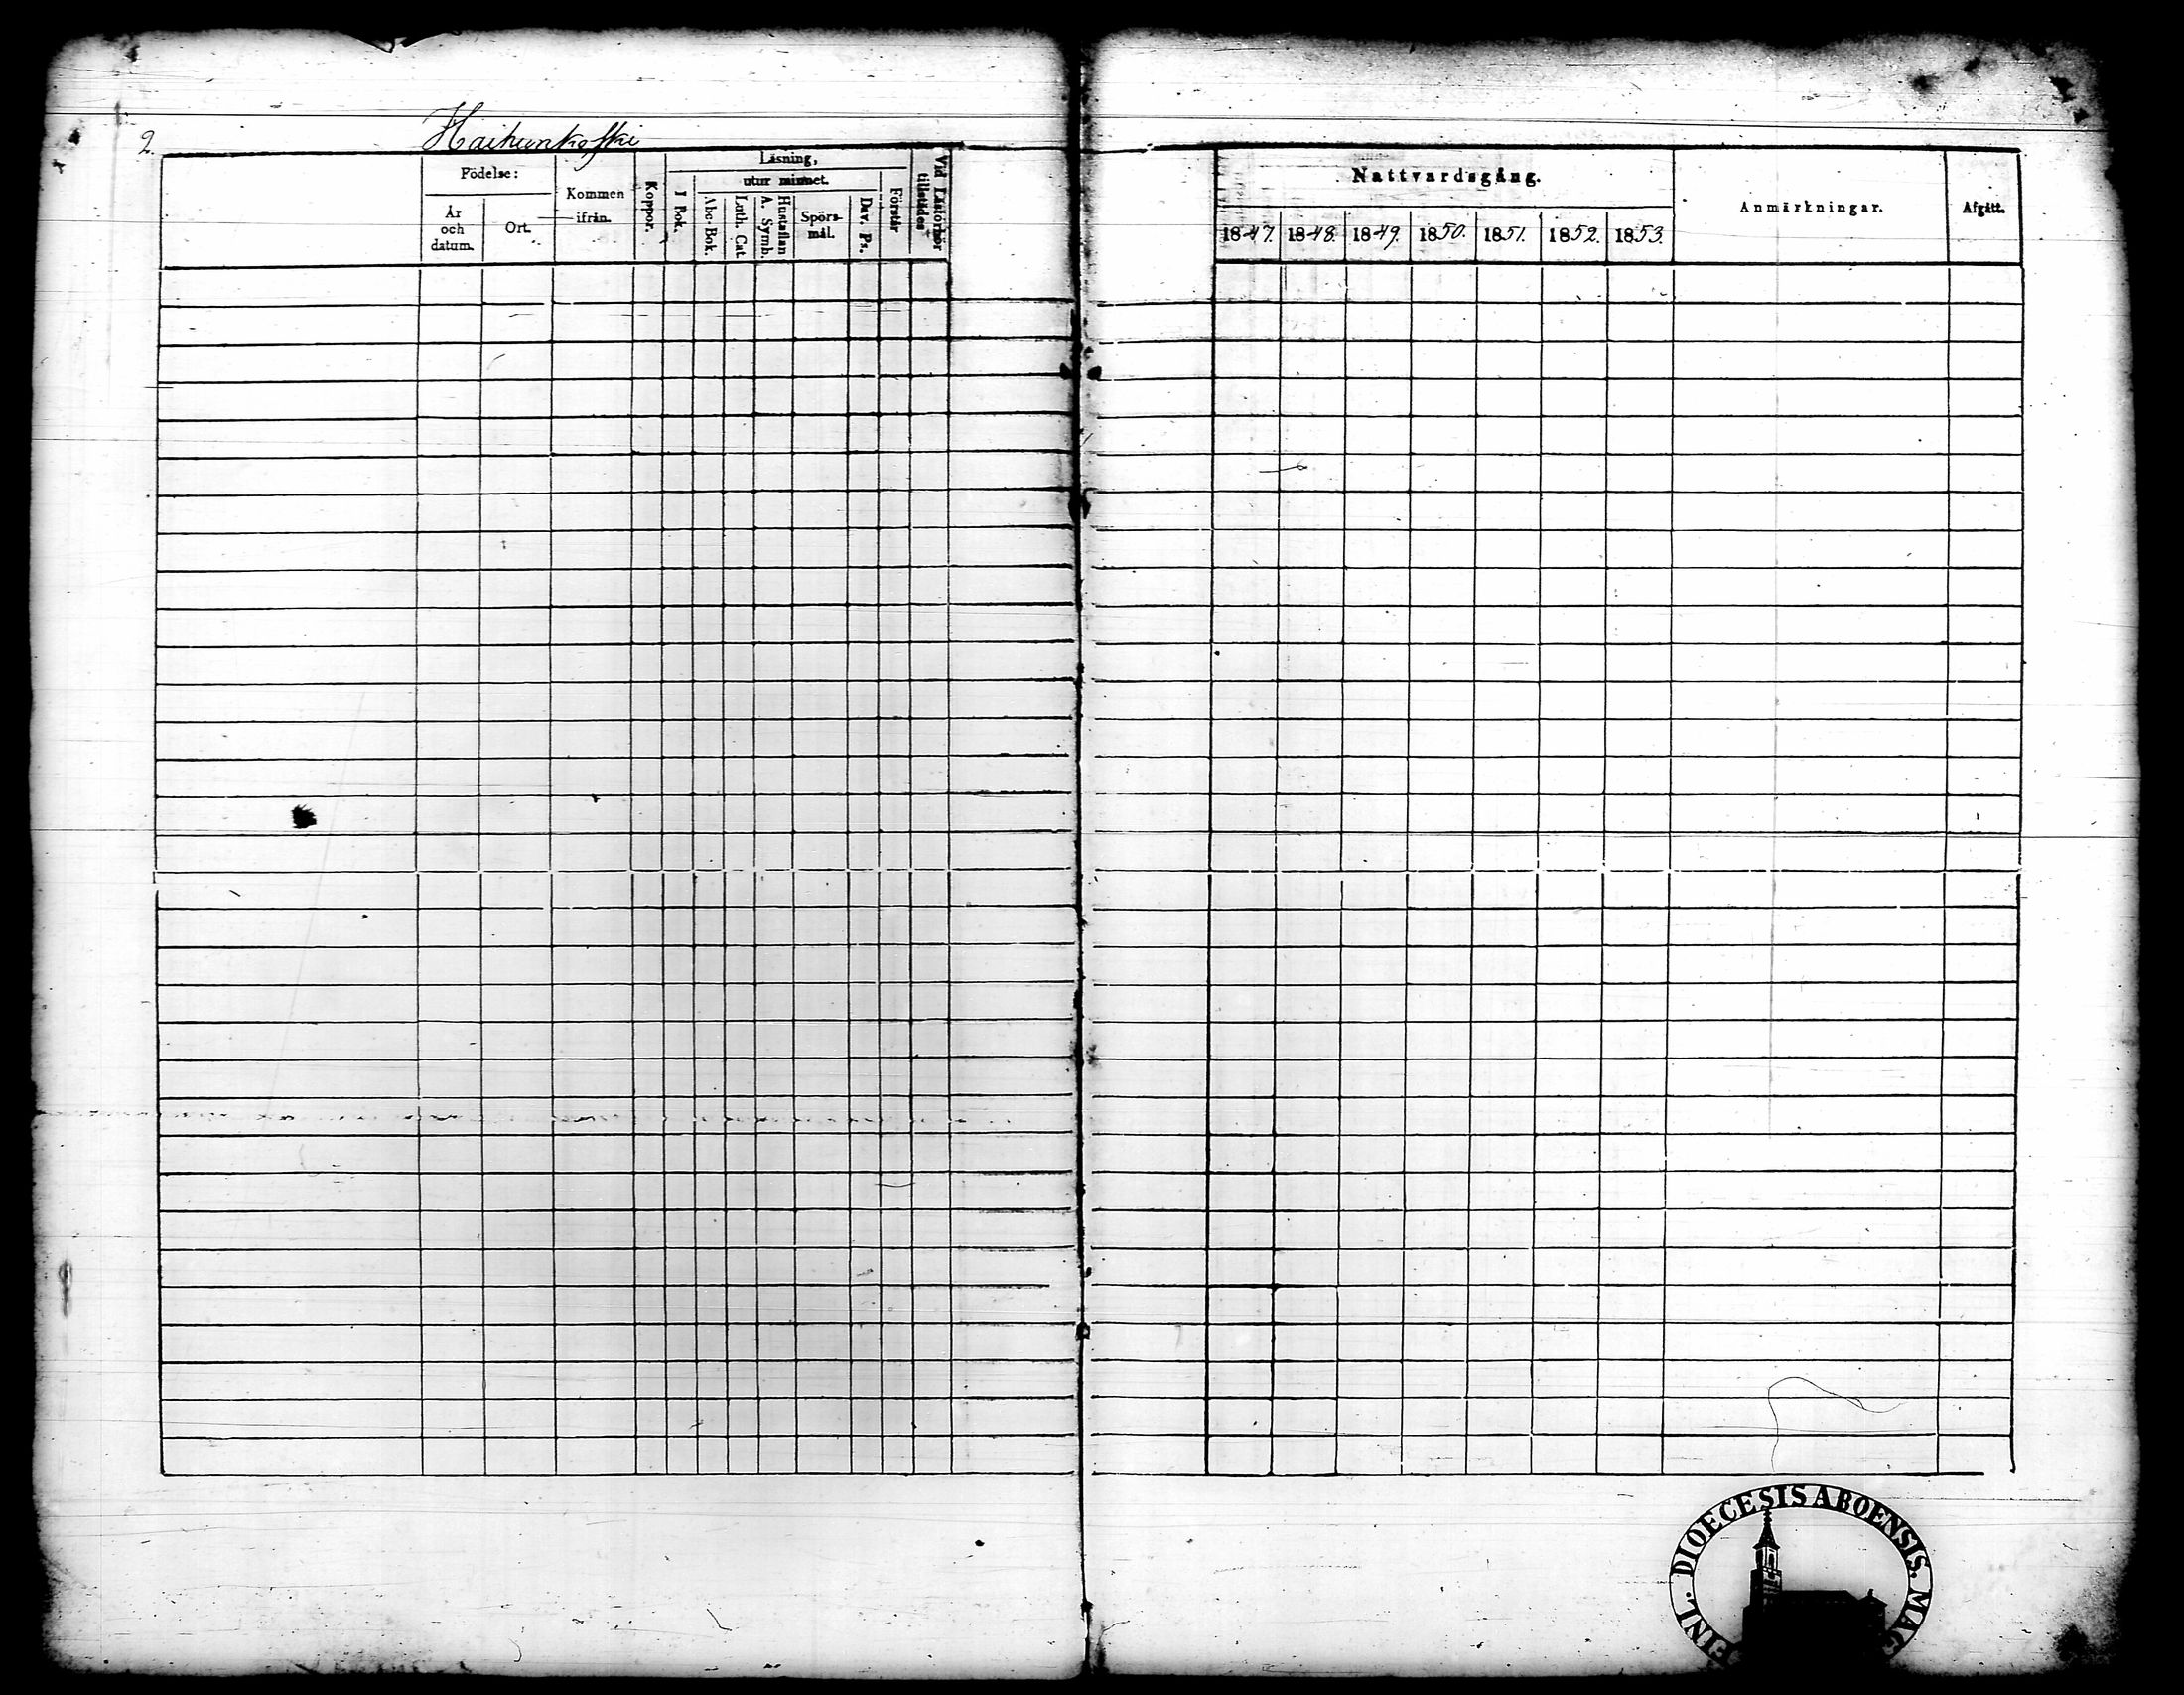 2.
Haihunkoski
Födelse:
År
och
datum.
Ort.
Kommen
ifrån.
Koppor.
Läsning,
utur minnet.
I Bok.
Abc-Bok.
Luth. Cat
Hustaflan
A. Symb.
Spörs-
mål.
Dav. Ps.
Förstår
Vid Läsförhör
tillstädes
Nattvardsgång.
1847. 1848. 1849. 1850. 1851. 1852. 1853.
Anmärkningar.
Afgått.
DIOECESIS ABOENSIS. MAG